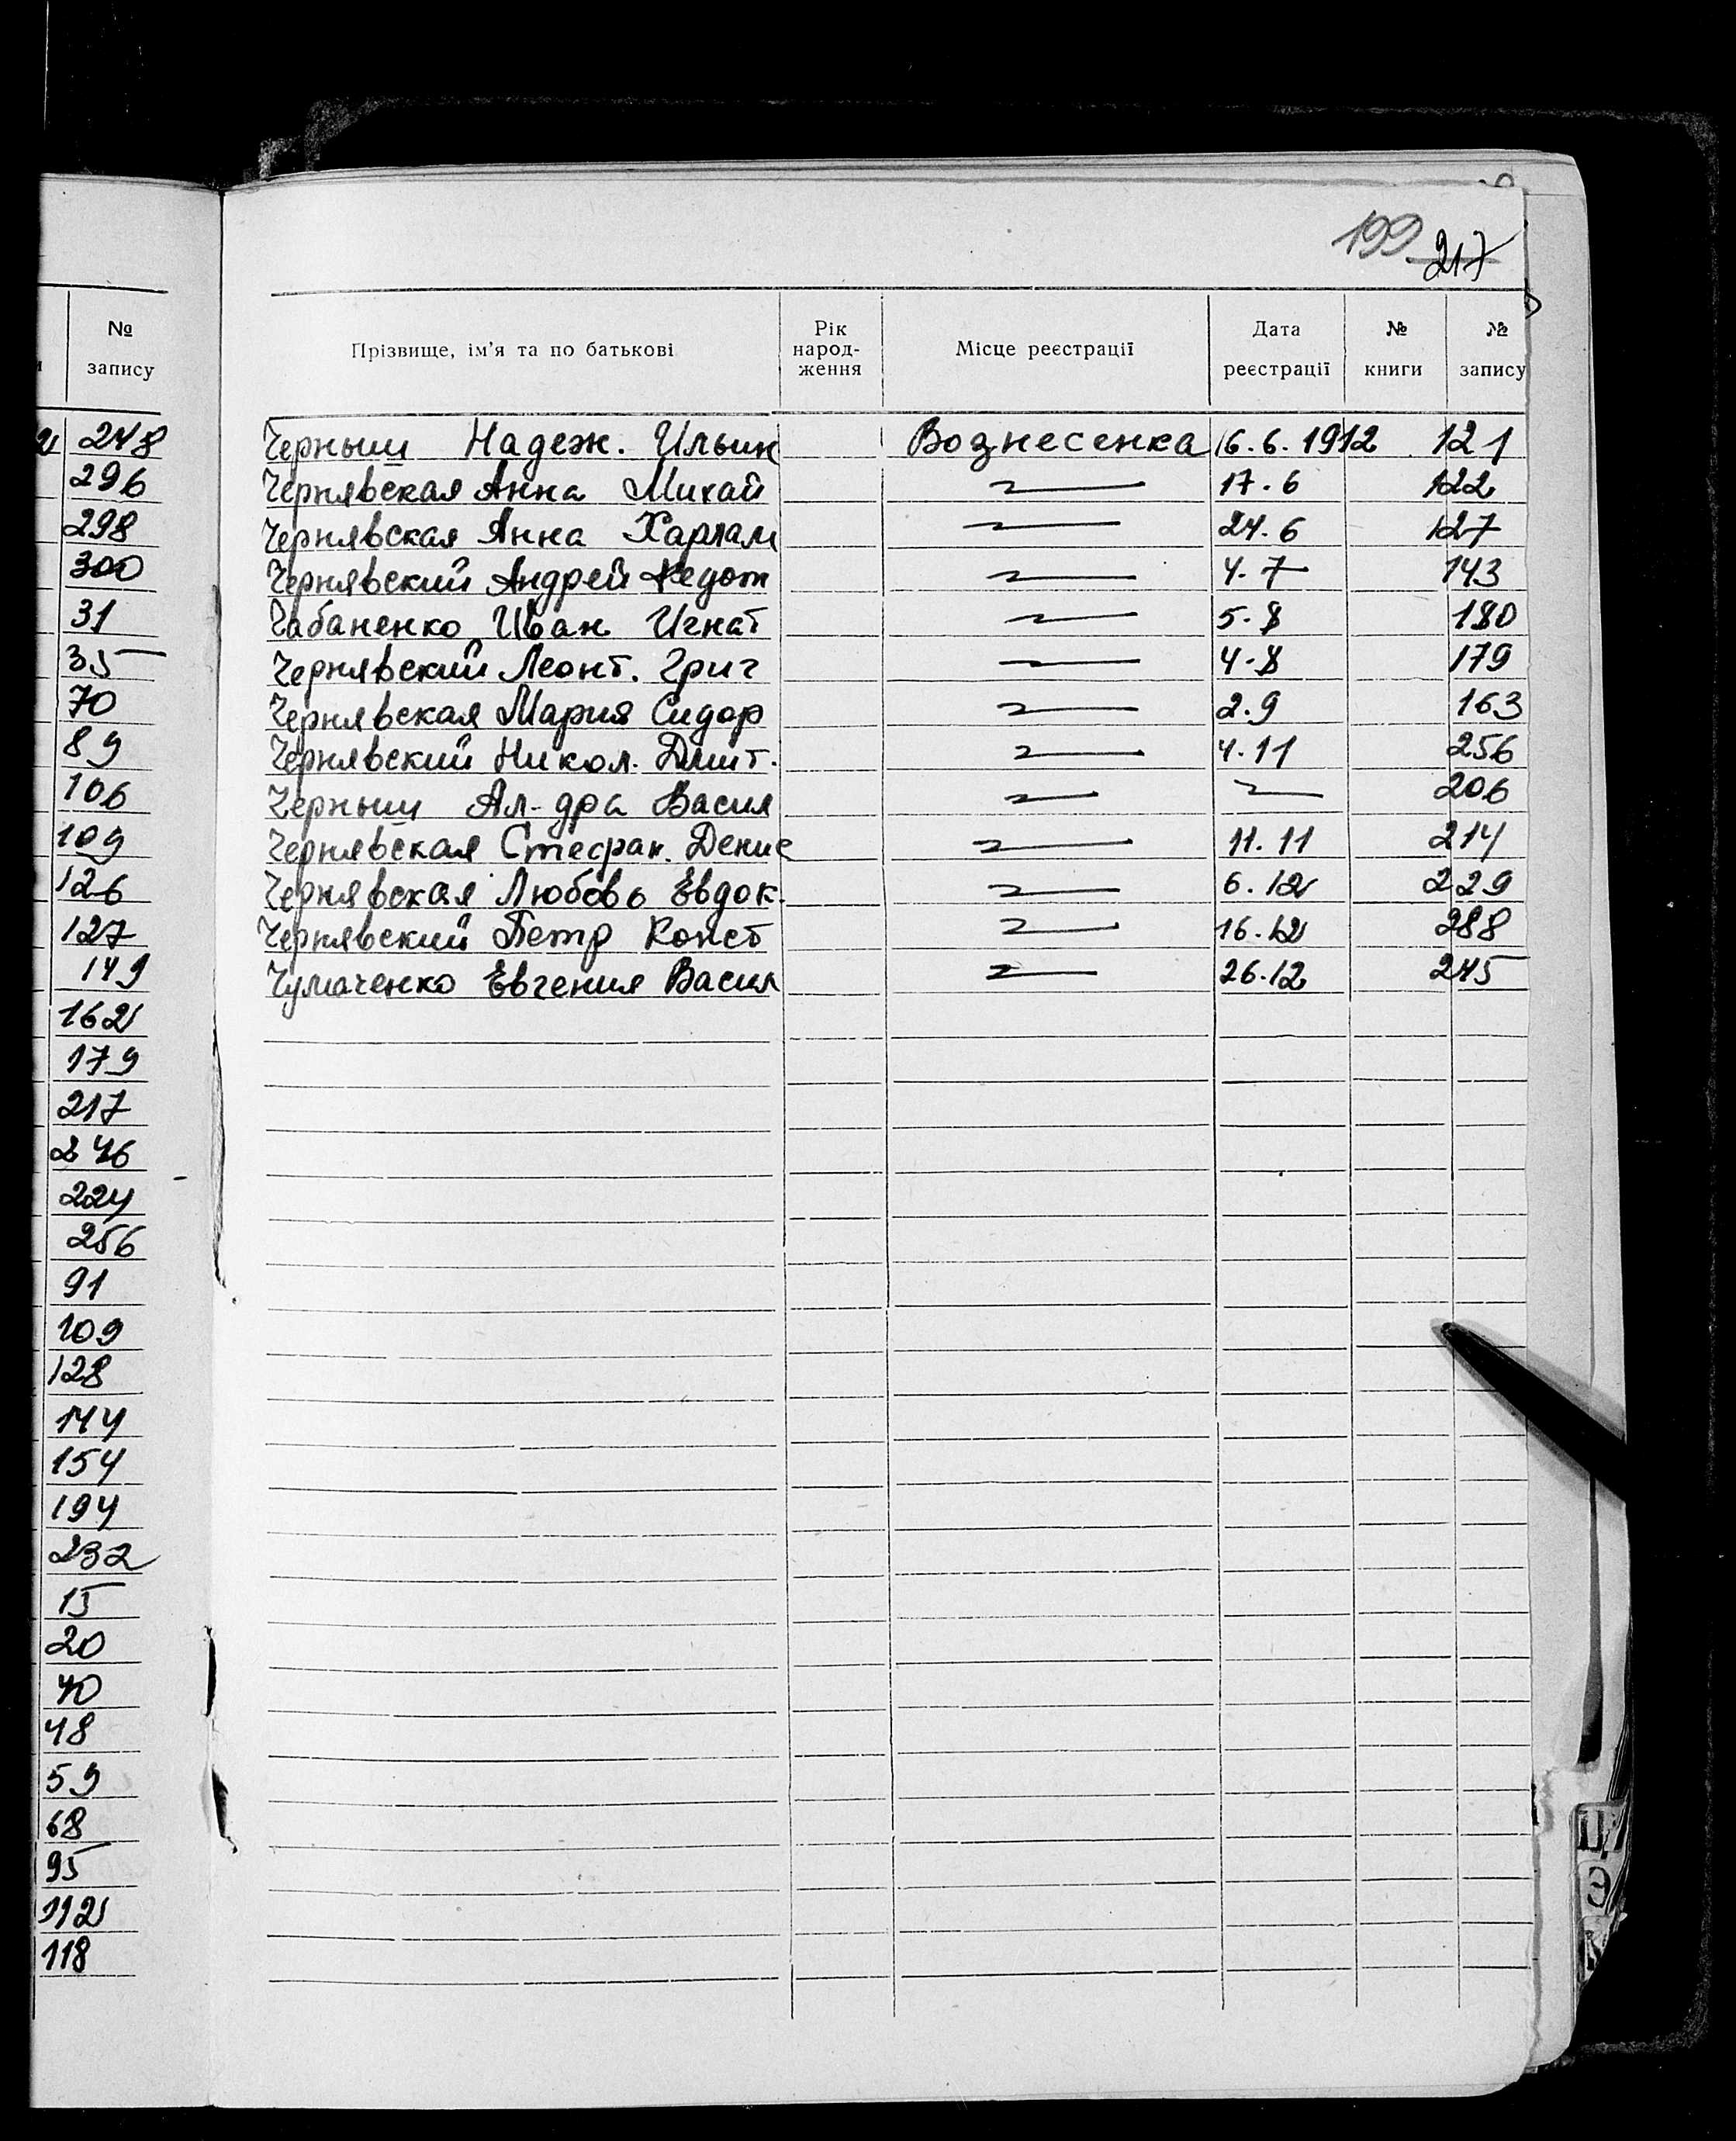 199 217
№ запису
Прізвище, ім'я та по батькові Рік народ-ження Місце реєстрації Дата реєстрації № книги № запису
248
296
298
300
31
35
70
89
106
109
126
127
149
162
179
217
246
224
256
91
109
128
144
154
194
232
15
20
40
48
59
68
95
112
118
Черныш Надеж. Ильин Вознесенка 16.6.1912 121
Чернявская Анна Михай —〃— 17.6 122
Чернявская Анна Харлам —〃— 24.6 127
Чернявский Андрей Федот —〃— 4.7 143
Чабаненко Иван Игнат —〃— 5.8 180
Чернявский Леонт. Григ —〃— 4.8 179
Чернявская Мария Сидор —〃— 2.9 163
Чернявский Никол. Дмит. —〃— 4.11 256
Черныш Ал-дра Васил —〃— —〃— 206
Чернявская Стефан. Дение —〃— 11.11 214
Чернявская Любовь Евдок. —〃— 6.12 229
Чернявский Петр Конст —〃— 16.12 288
Чумаченко Евгения Васил —〃— 26.12 245